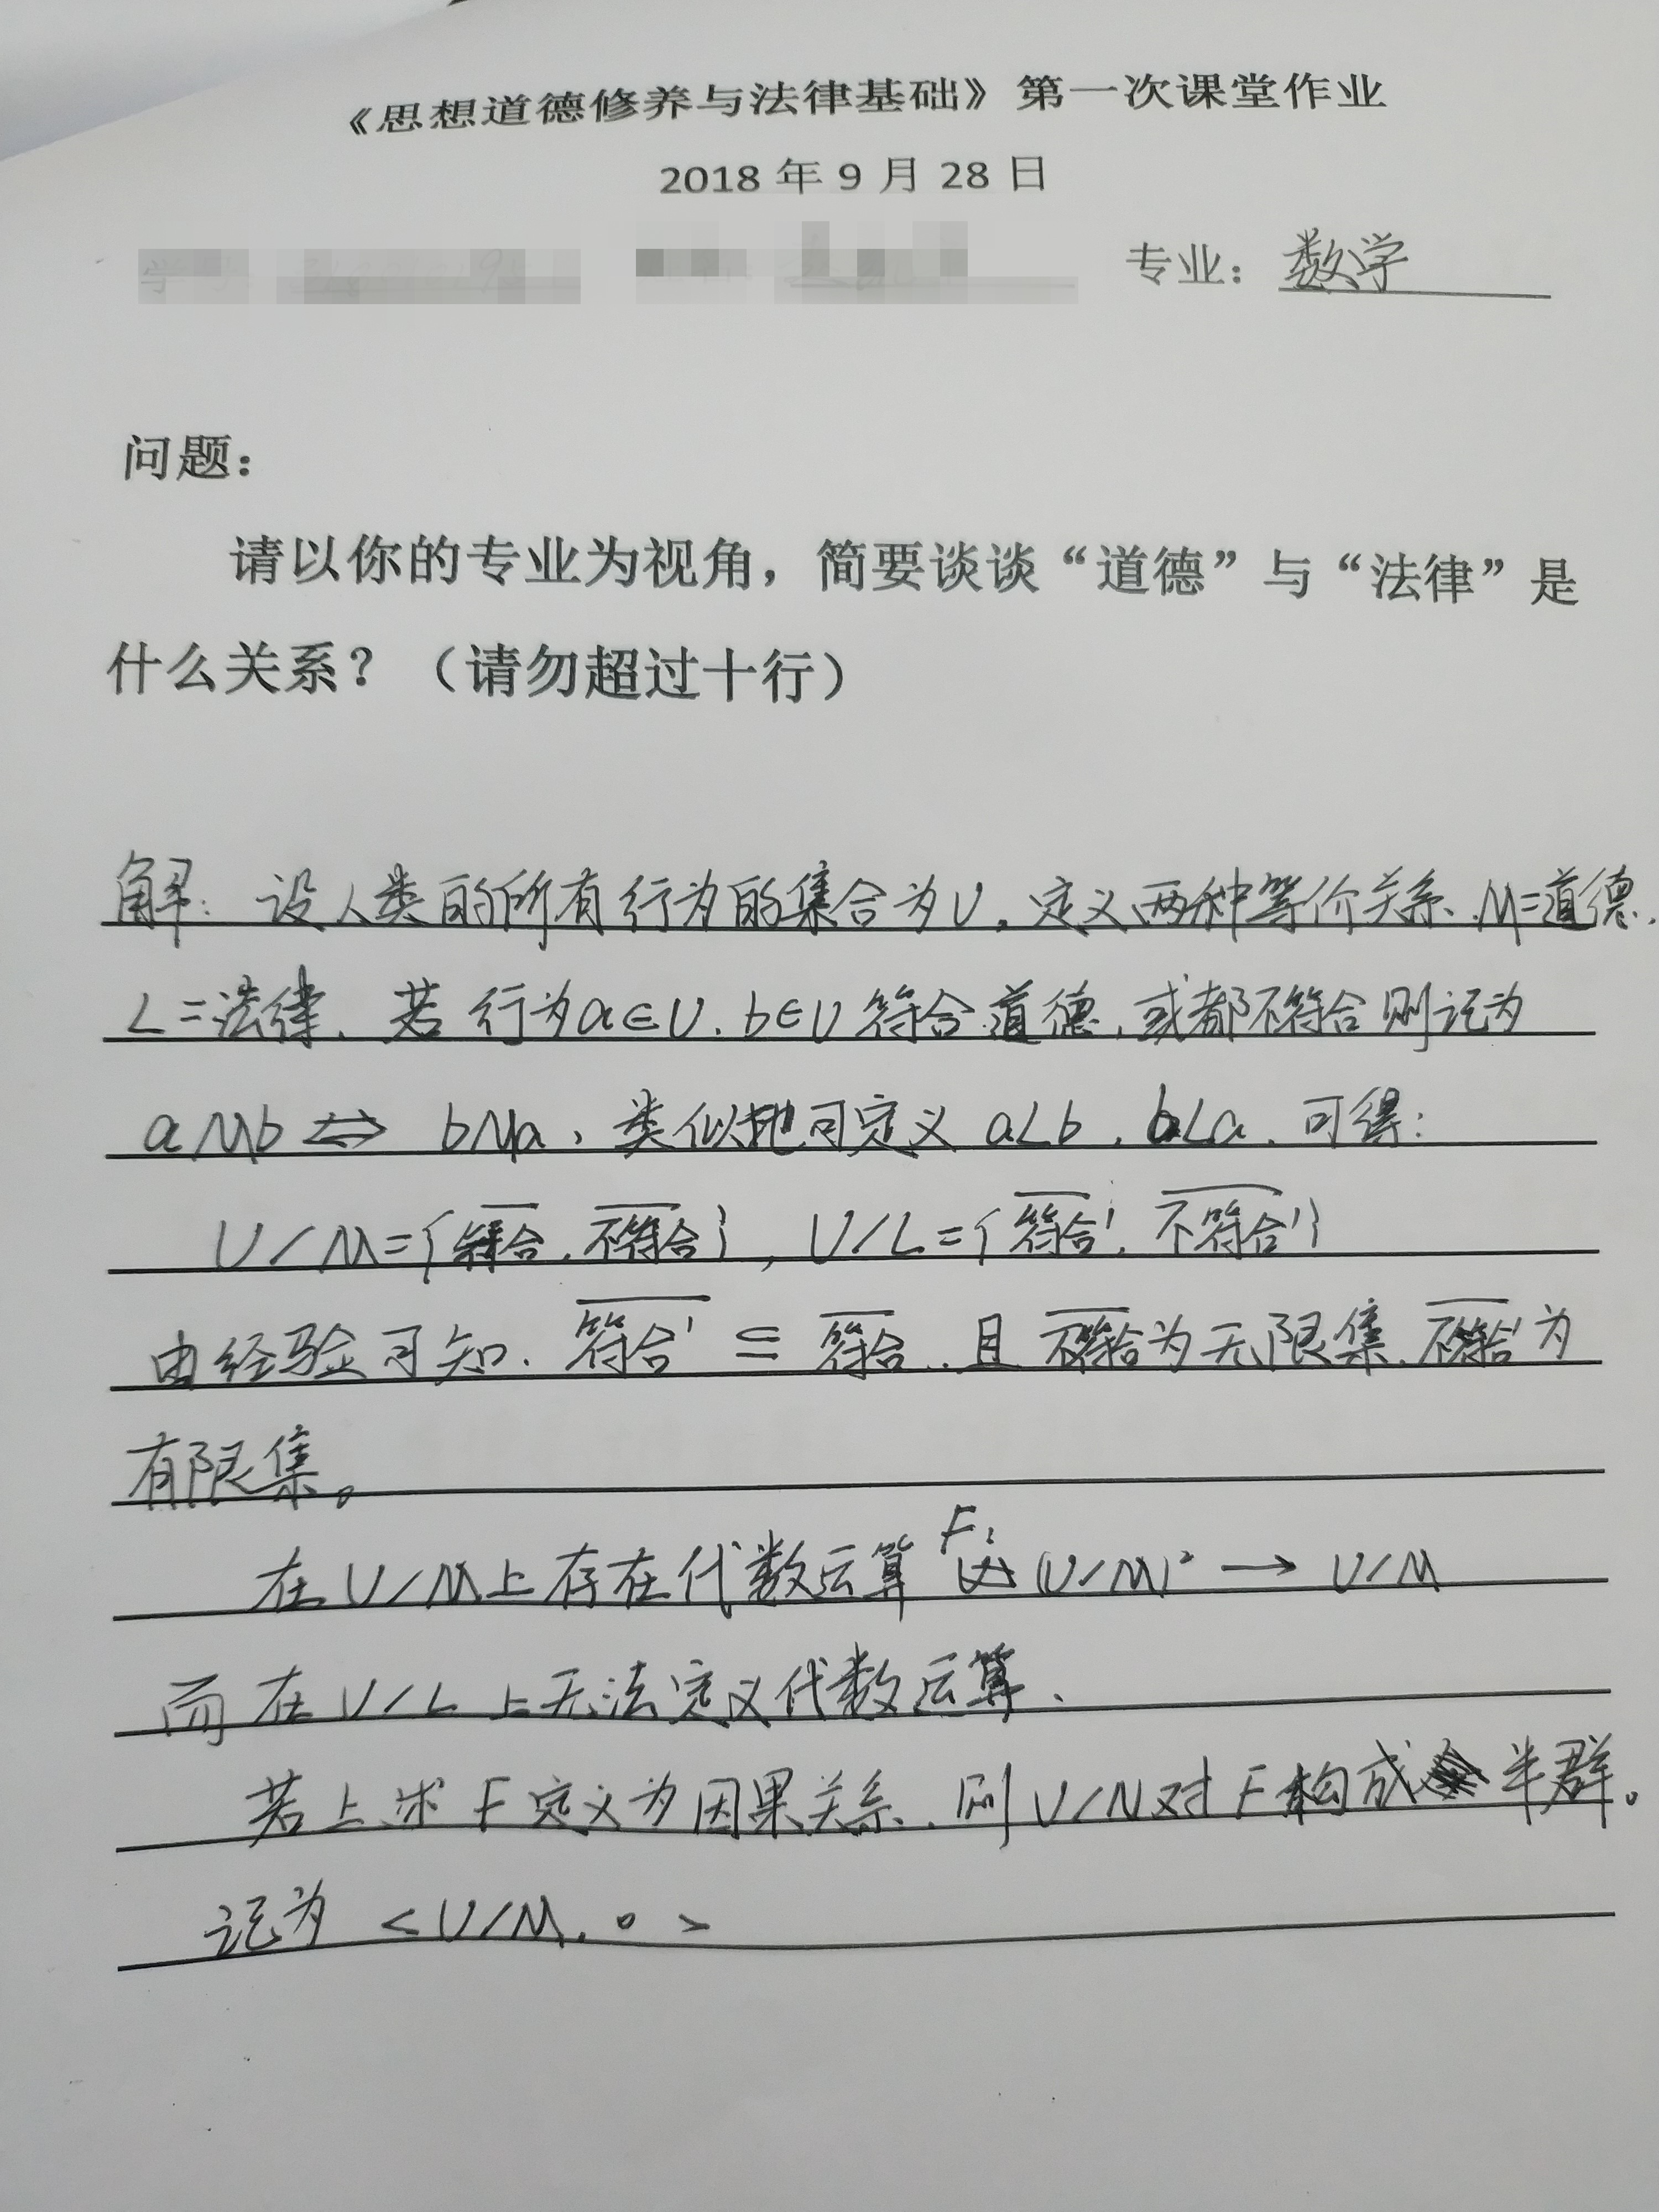 《思想道德修养与法律基础》第一次课堂作业
2018 年 9 月 28 日
专业：数学
问题：
请以你的专业为视角，简要谈谈“道德”与“法律”是
什么关系？（请勿超过十行）
解：设人类的所有行为的集合为U，定义两种等价关系，M=道德，
L=法律，若行为a∈U，b∈U符合道德，或都不符合则记为
aMb ⇔ bMa，类似地可定义 aLb，bLa，可得：
U/M={符合，不符合}，U/L={符合'，不符合'}
由经验可知，符合' ⊆ 符合，且不符合为无限集，不符合'为
有限集。
在U/M上存在代数运算 F: (U/M)² → U/M
而在U/L上无法定义代数运算，
若上述F定义为因果关系，则U/M对F构成半群。
记为 <U/M，∘>